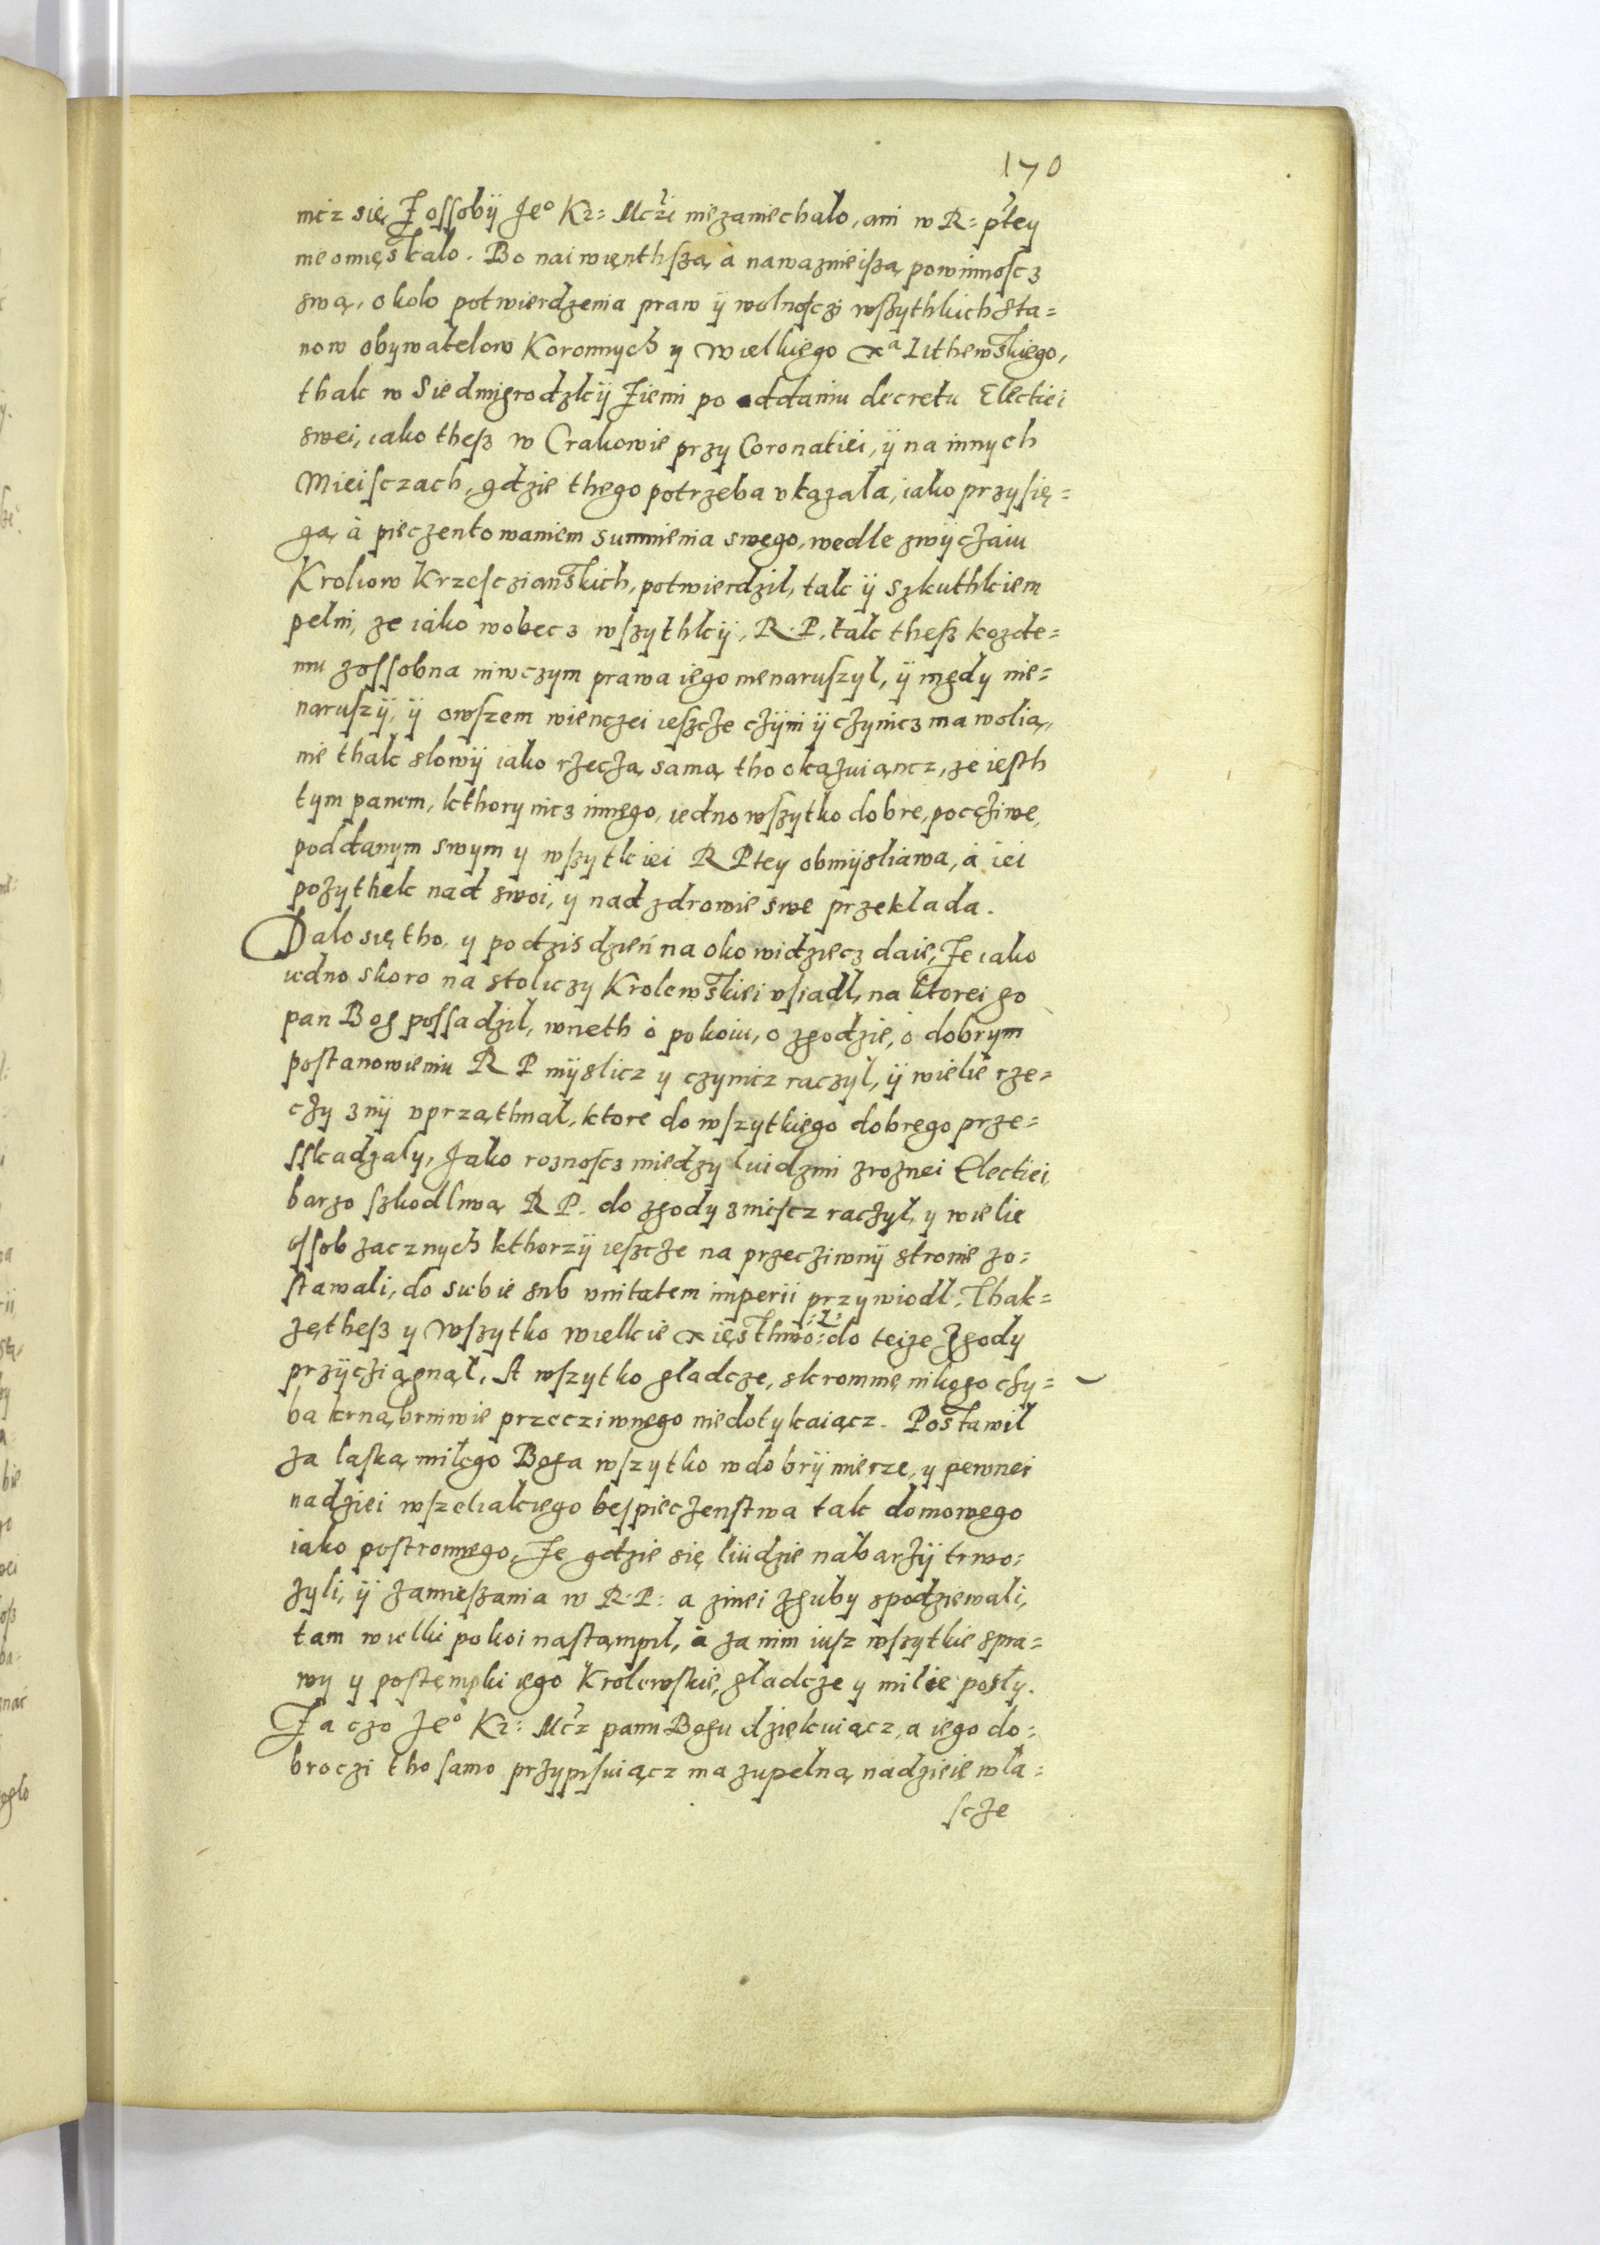 170
nicz się Z ossobÿ Je° Kr: Mczi niezaniechalo, ani w R: ptey
nieomięskalo. Bo naiwięnthszą à nawaznieiszą powinnoscz
swą, okolo potwierdzenia praw ÿ wolnosczi wszythkich sta=
now obywatelow Koronnych y Wielkiego xᵃ Lithewskiego,
thak w Siedmigrodzkÿ Ziemi po oddaniu decretu Electiei
swei, iako thesz w Crakowie przy Coronatiei, ÿ na innych
Mieisczach, gdzie thego potrzeba vkązala, iako przysię=
gą à pieczentowaniem sumnienia swego, wedle zwÿczaiu
Kroliow Krzesczianskich, potwierdzil, tak ÿ Szkuthkiem
pelni, ze iako wobecz wszythkÿ, R. P. tak thesz kozde=
mu zossobna niwczym prawa iego nienaruszyl, ÿ nigdy nie=
naruszÿ, ÿ owszem wienczei iescze czÿni ÿ czynicz ma wolią,
nie thak slowÿ iako rzeczą samą tho okązuiąncz, ze iesth
tym panem, kthory nicz innego, iedno wszytko dobre, pocziwe,
poddanym swym y wszytkiei R Ptey obmÿsliawa, à iei
pozythek nad swoi, y nad zdrowie swe przeklada.
Dalo się tho, y podzis dzień na oko widziecz daie, Ze iako
iedno skoro na stoliczy Krolewskiei vsiadl, na ktorei go
pan Bog possadzil, wneth ò pokoiu, o zgodzie, ò dobrym
postanowieniu R P mÿslicz y czynicz raczyl, ÿ wielie rze=
czy z nÿ vprząthnal, ktore do wszytkiego dobrego prze=
sskadzaly, Jako roznoscz miedzy luidzmi zroznei Electiei
barzo szkodliwą R P. do zgody zniescz raczyl, y wielie
ossob zacznych kthorzÿ iescze na przecziwnÿ stronie zo=
stawali, do siebie sub vnitatem imperii przywiodl, Thak=
zethesz y Wszytko wielkie xięsthwo :L: do teize Zgody
przÿcziągnąl, A wszytko gladcze, skromnie nikogo chy=
ba krnąbrniwie przecziwnego niedotykaiącz. Postawil
za laską milego Boga wszytko w dobrÿ mierze, y pewnei
nadziei wszeliakiego bespieczenstwa tak domowego
iako postronnego, Ze gdzie się liüdzie nabarzÿ trwo=
zyli, ÿ zamieszania w R. P: a zinei zguby spodziewali,
tam wielki pokoi nastąmpil, à za nim iusz wszytkie spra=
wy y postempki iego Krolewskie, gladcze y milie posly.
Za czo Je° Kr: Mcz panu Bogu dziękuiącz, a iego do=
broczi tho samo przypisuiącz ma zupelną nadzieie wła=
scze